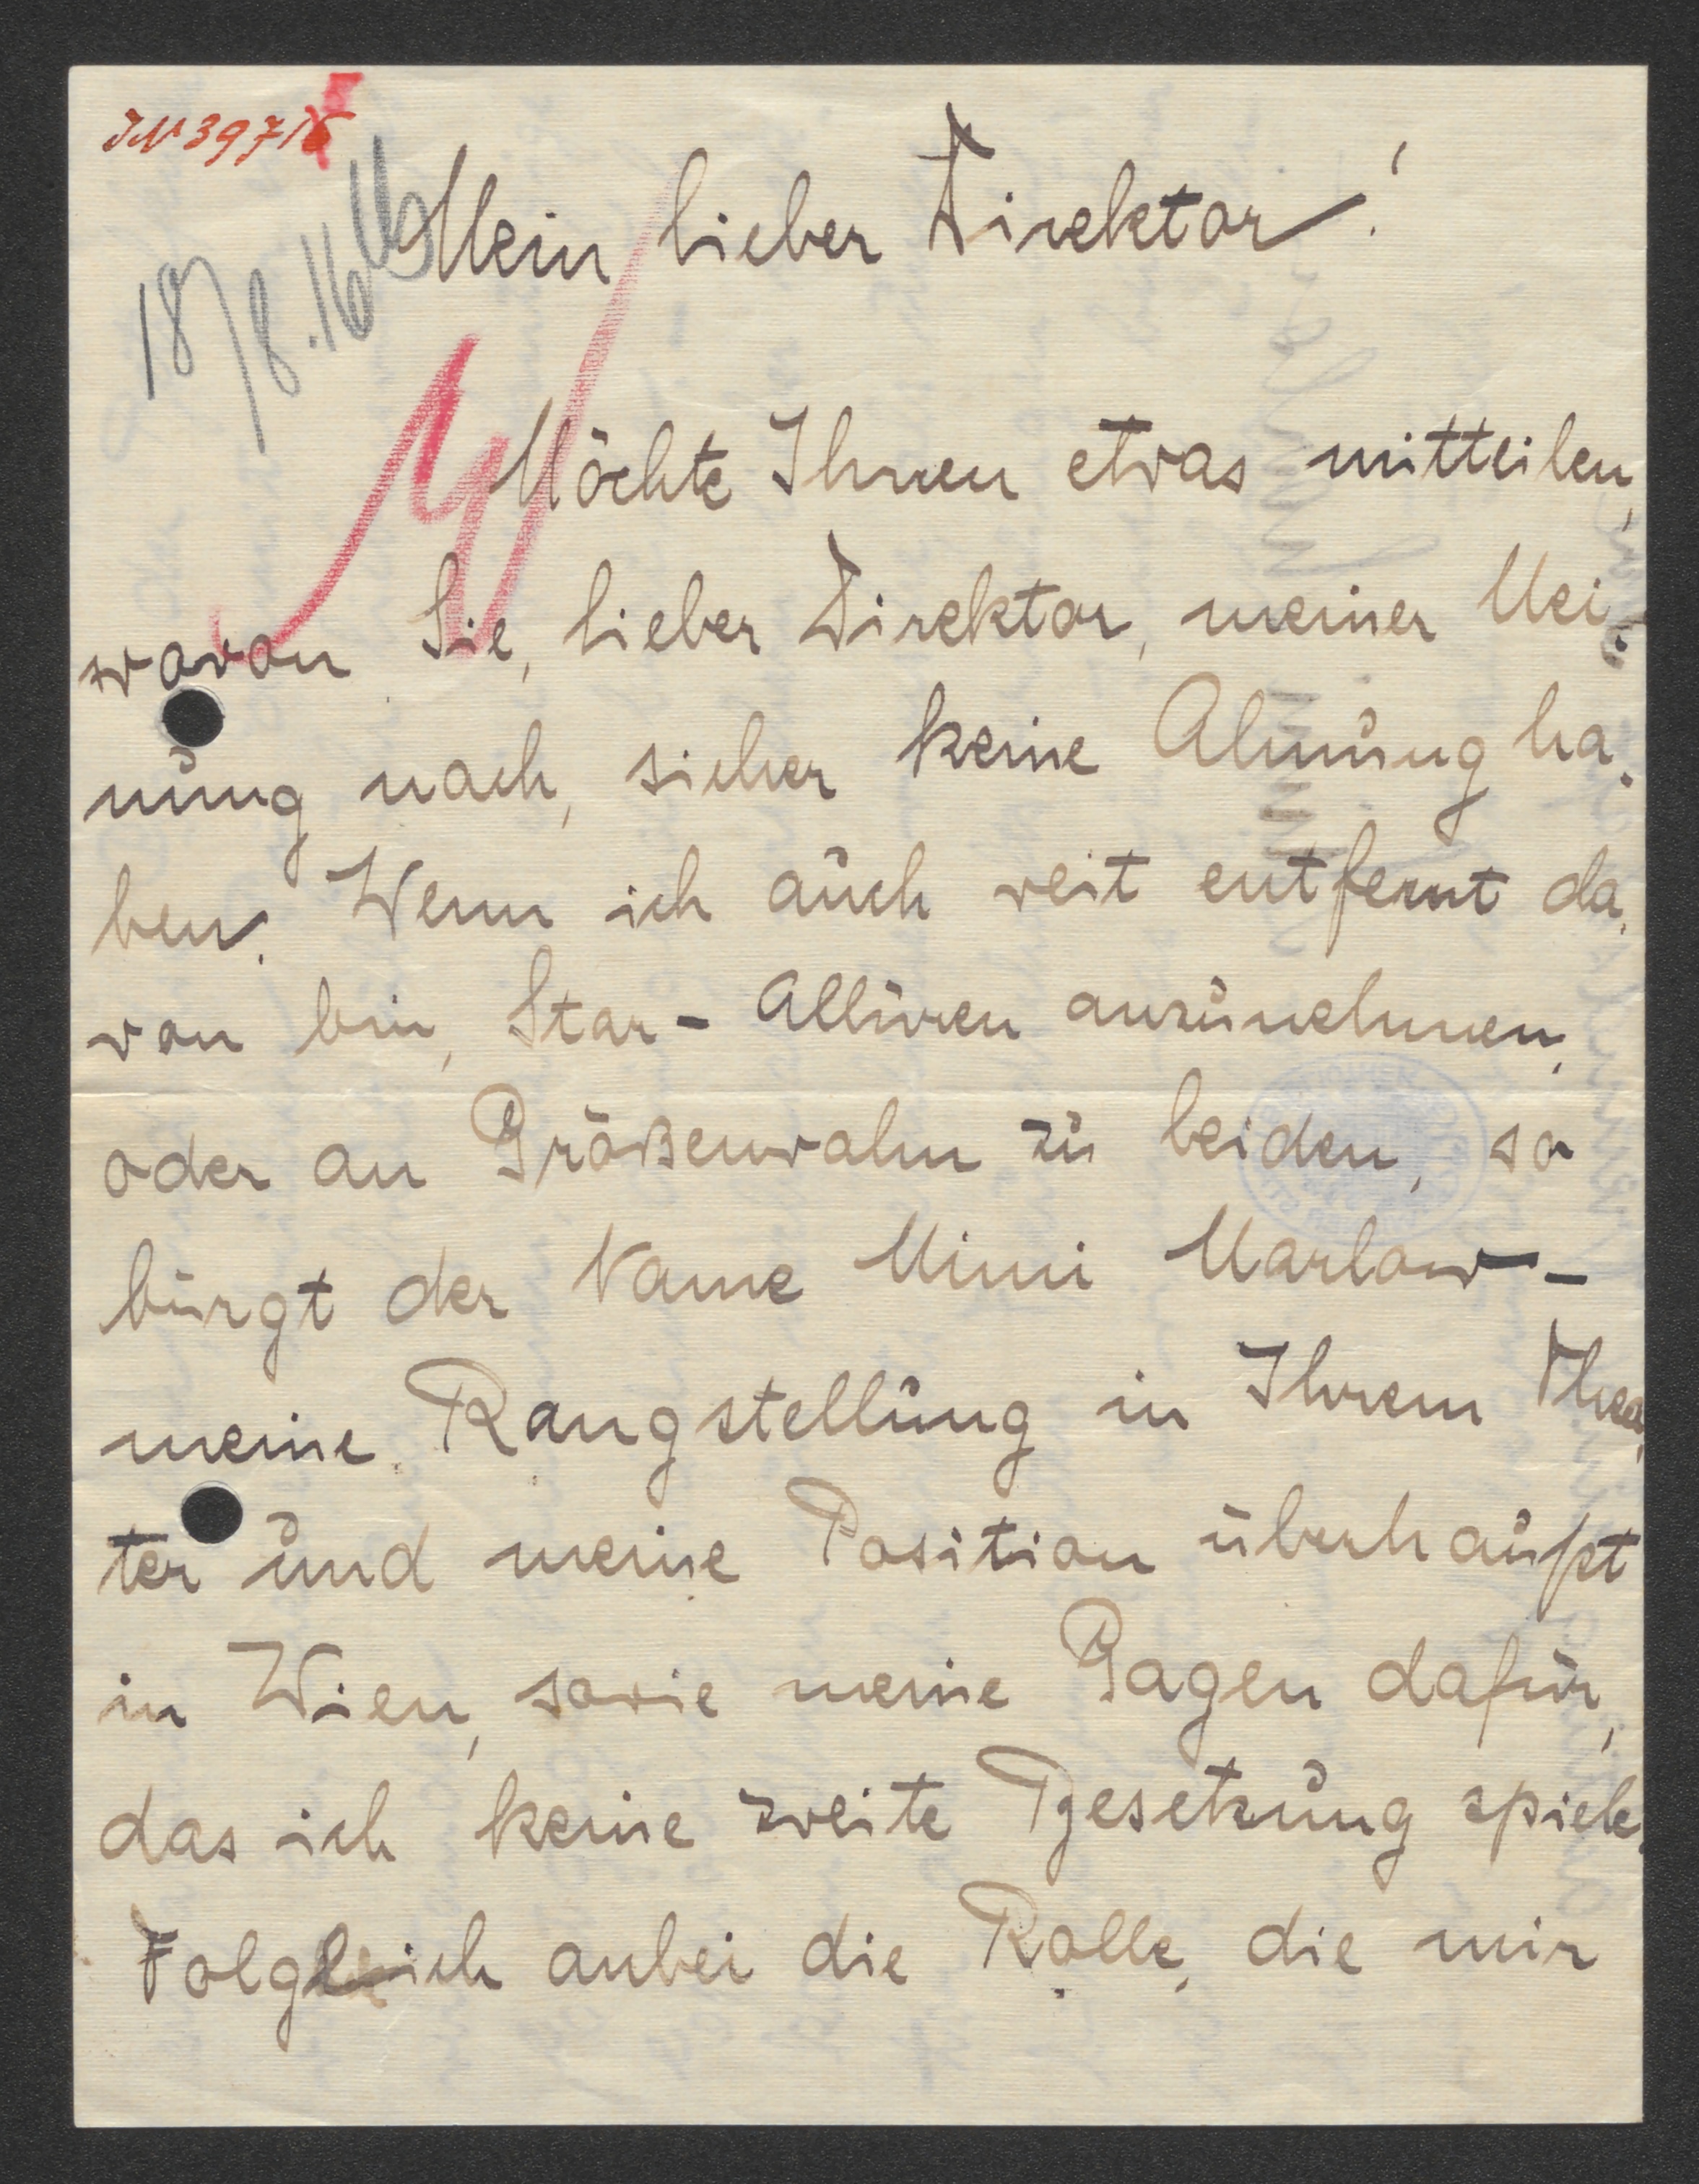 IN 3971
18/8.16
Mein lieber Direktor!
Möchte Ihnen etwas mitteilen,
wovon Sie, lieber Direktor, meiner Mei-
nung nach, sicher keine Ahnung ha-
ben. Wenn ich auch weit entfernt da-
von bin, Star-Allüren anzunehmen,
oder an Größenwahn zu leiden, so
bürgt der Name Mimi Marlow-
meine Rangstellung in Ihrem Thea-
ter und meine Position überhaupt
in Wien, sowie meine Gagen dafür,
das ich keine zweite Besetzung spiele.
Folglich anbei die Rolle, die mir